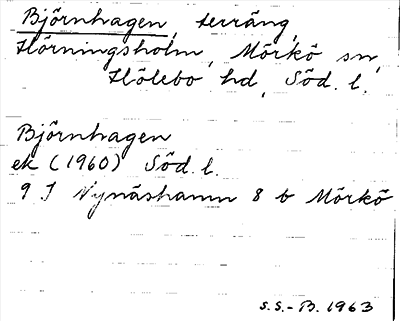 Björnhagen, terräng,
Hörningsholm, Mörkö sn,
Hölebo hd, Söd. l.
Björnhagen
ek (1960) Söd. l.
9 I Nynäshamn 8 b Mörkö
S.S.-B. 1963